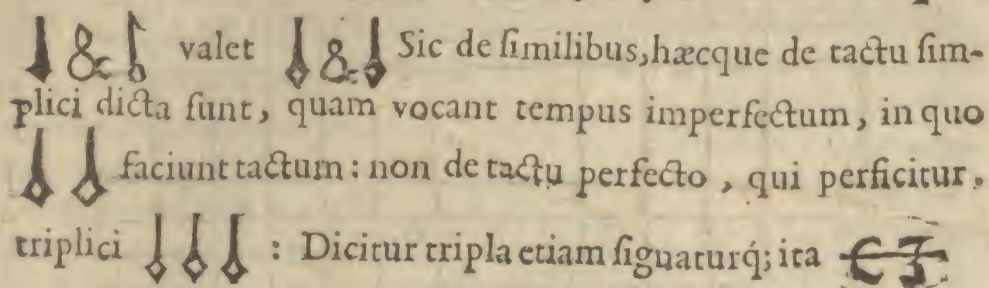 & valet & Sic de ſimilibus, hæcque de tactu ſim-
plici dicta ſunt, quam vocant tempus imperfectum, in quo
faciunt tactum: non de tactu perfecto, qui perficitur,
triplici : Dicitur tripla etiam ſignaturq́; ita